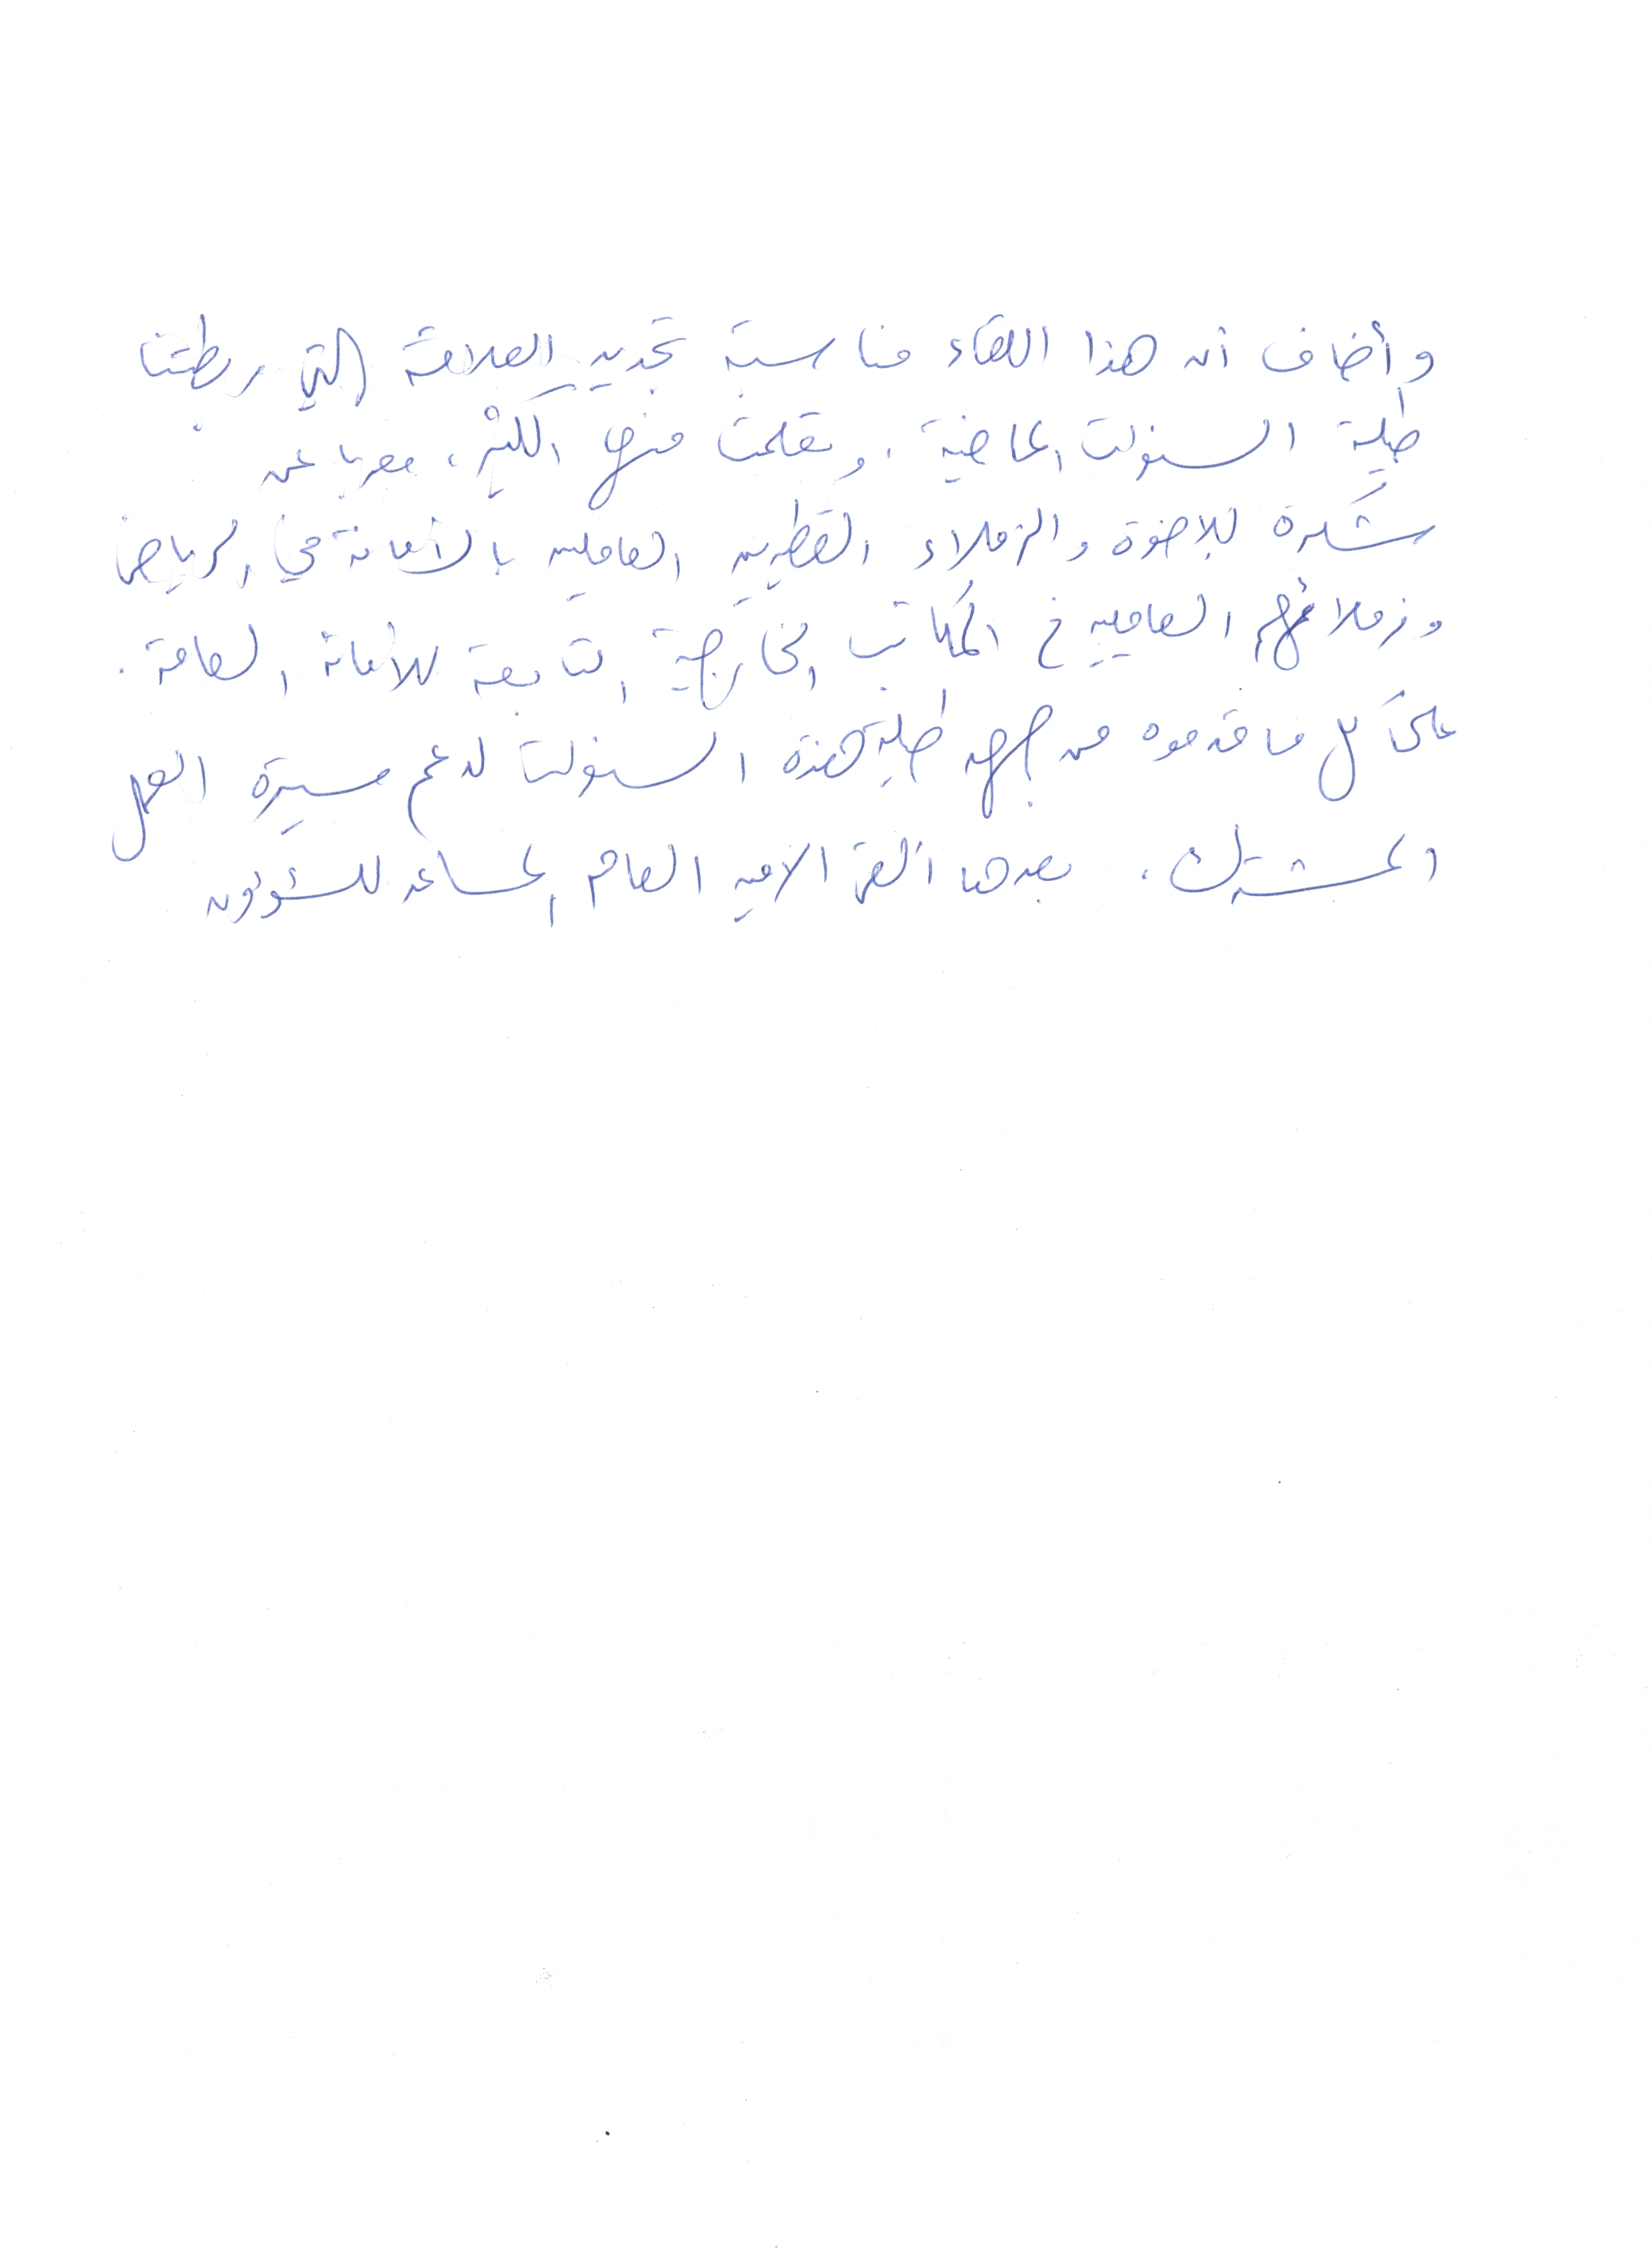 وأضاف أن هذا اللقاء مناسبة تجديد العلاقة التي ربطتنا
طيلة السنوات الماضية ، وتعلمت منها الكثير ، معربا عن
شكره للاخوة والزملاء القطريين العاملين بالأمانة في الرياض
وزملائهم العاملين في المكاتب الخارجية التابعة للأمانة العامة .
على كل ما قدموه من جهد طيلة هذه السنوات لدعم مسيرة العمل
المشترك . بعدها ألقى الامين العام المساعد للشؤون